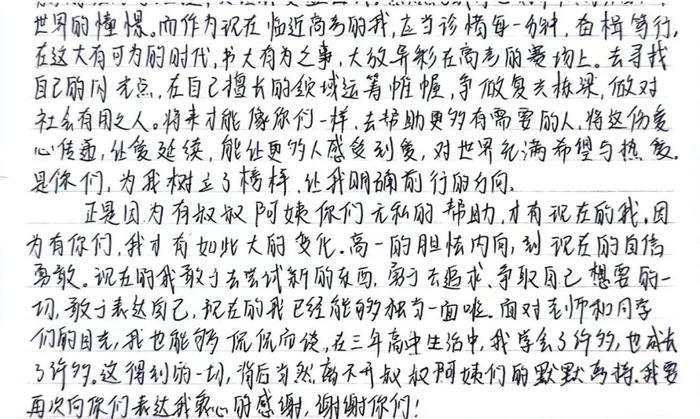 世界的憧憬。而作为现在临近高考的我,应当珍惜每一分钟,奋楫笃行,
在这大有可为的时代,书大有为之事,大放异彩在高考的赛场上。去寻找
自己的闪光点,在自己擅长的领域运筹帷幄,争做复兴栋梁,做对
社会有用之人。将来才能像你们一样,去帮助更多有需要的人,将这份爱
心传递,让爱延续,能让更多人感受到爱,对世界充满希望与热爱。
是你们,为我树立了榜样,让我明确前行的方向。
正是因为有叔叔阿姨你们无私的帮助,才有现在的我。因
为有你们,我才有如此大的变化。高一的胆怯内向,到现在的自信
勇敢。现在的我敢于去尝试新的东西,勇于去追求、争取自己想要的一
切,敢于表达自己,现在的我已经能够独当一面啦。面对老师和同学
们的目光,我也能够侃侃而谈,在三年高中生活中,我学会了许多,也成长
了许多。这得到的一切,背后当然离不开叔叔阿姨们的默默支持。我要
再次向你们表达我衷心的感谢,谢谢你们!